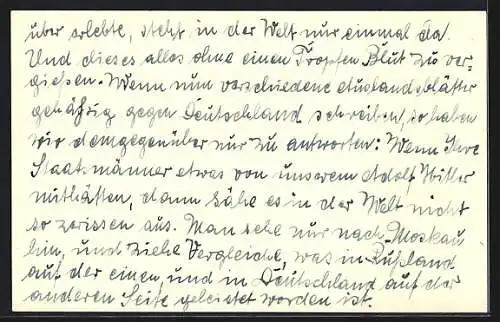 über erlebte, steht in der Welt nur einmal da.
Und dieses alles ohne einen Tropfen Blut zu ver-
gießen. Wenn nun verschiedene Auslandsblätter
gehässig gegen Deutschland schreiben, so haben
wir demgegenüber nur zu antworten: Wenn Ihre
Staatsmänner etwas von unserem Adolf Hitler
mithätten, dann sähe es in der Welt nicht
so zerissen aus. Man sehe nur nach Moskau
hin, und ziehe Vergleiche, was in Rußland
auf der einen, und in Deutschland auf der
anderen Seite geleistet worden ist.